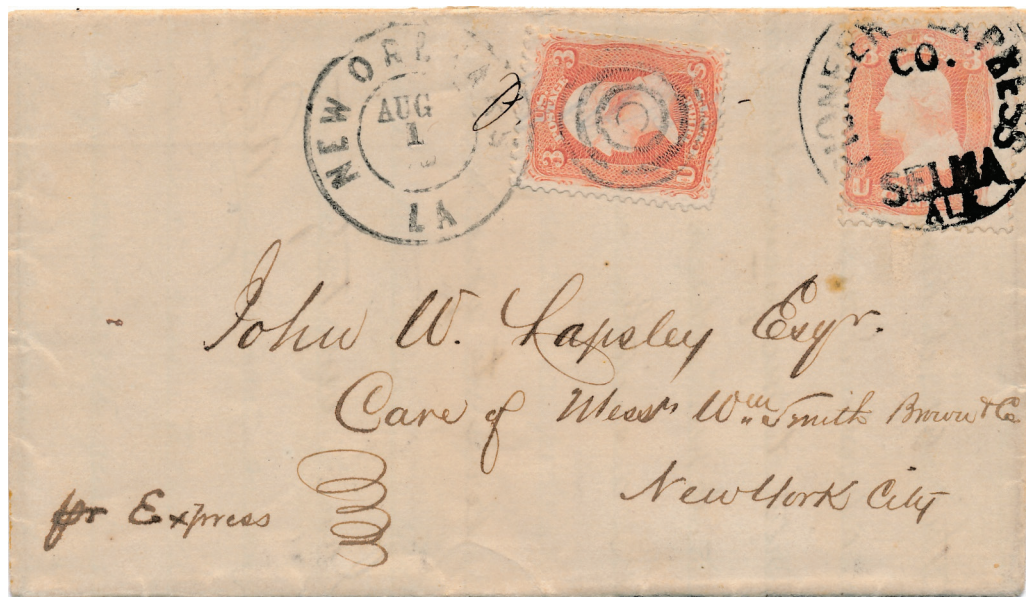 NEW ORLEANS
AUG
1
LA
3 3
U.S. POSTAGE
U S
PIONEER EXPRESS
CO.
SELMA
ALA
John W. Lapsley Esqr.
Care of Messrs Wm Smith Brown & Co
New York City
pr Express